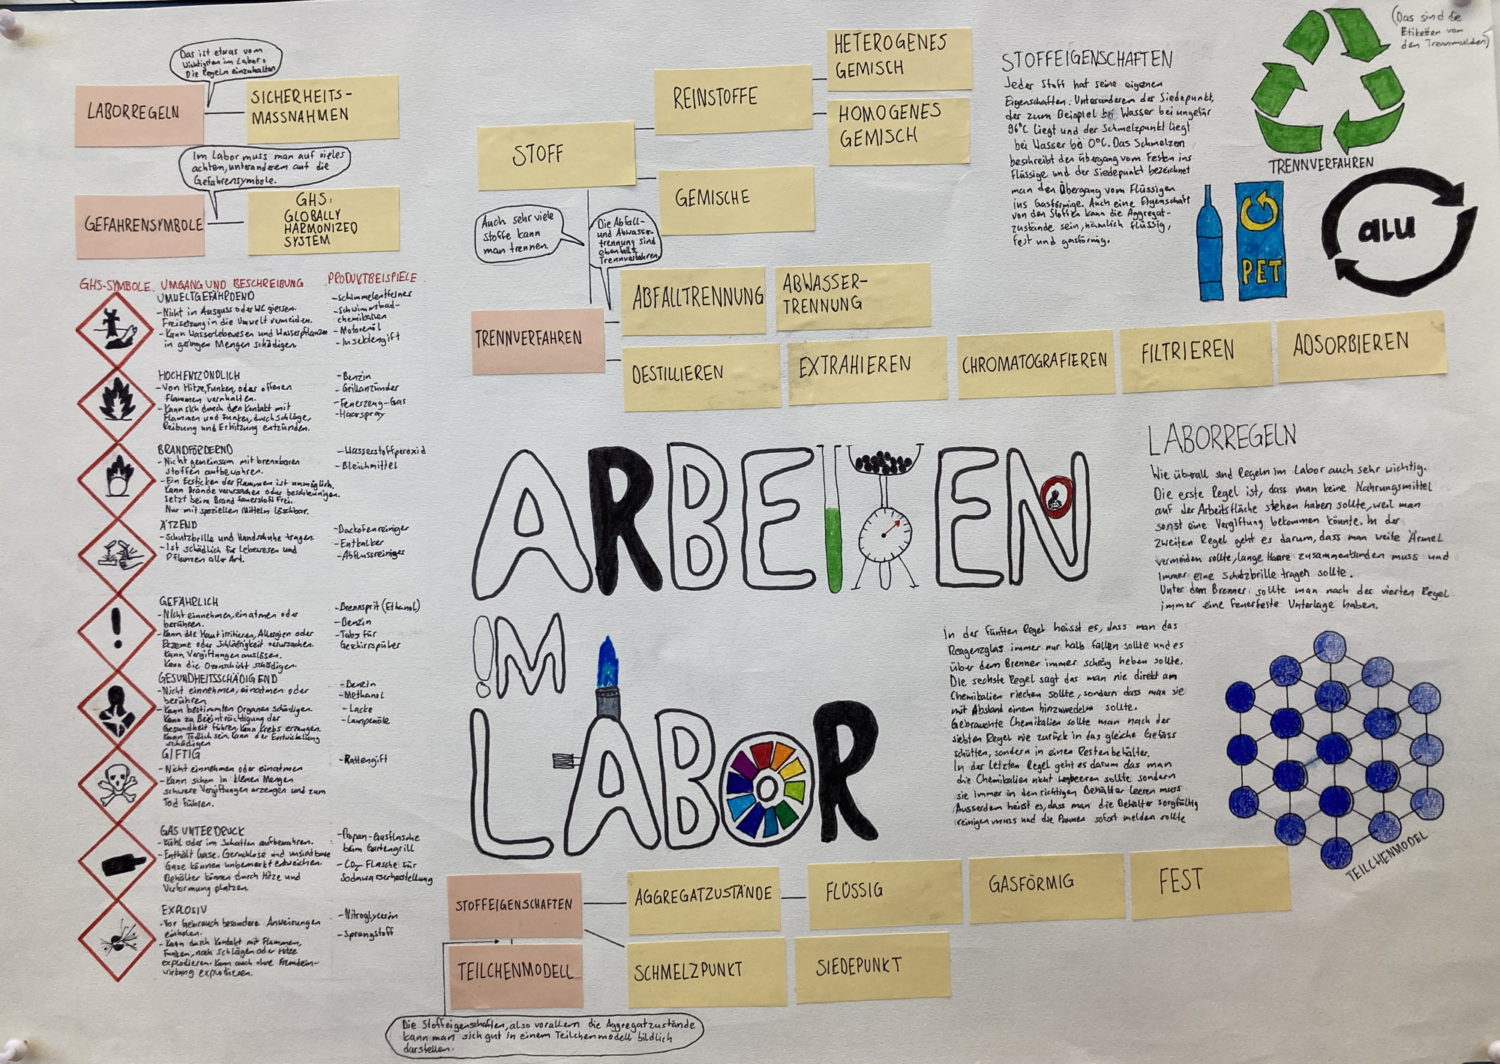 Das ist etwas vom
Wichtigsten im Labor:
Die Regeln einzuhalten
LABORREGELN
SICHERHEITS-
MASSNAHMEN
Im Labor muss man auf vieles
achten, unteranderem auf die
Gefahrensymbole.
GEFAHRENSYMBOLE
GHS:
GLOBALLY
HARMONIZED
SYSTEM
STOFF
REINSTOFFE
HETEROGENES
GEMISCH
HOMOGENES
GEMISCH
GEMISCHE
Auch sehr viele
Stoffe kann
man trennen
Die Abfall-
und Abwasser-
trennung sind
ebenfalls
Trennverfahren
TRENNVERFAHREN
ABFALLTRENNUNG
ABWASSER-
TRENNUNG
DESTILLIEREN
EXTRAHIEREN
CHROMATOGRAFIEREN
FILTRIEREN
ADSORBIEREN
STOFFEIGENSCHAFTEN
Jeder Stoff hat seine eigenen
Eigenschaften. Unteranderem der Siedepunkt,
der zum Beispiel bei Wasser bei ungefär
96°C liegt und der Schmelzpunkt liegt
bei Wasser bei 0°C. Das Schmelzen
beschreibt den übergang vom Festen ins
Flüssige und der Siedepunkt bezeichnet
man den Übergang vom Flüssigen
ins Gasförmige. Auch eine Eigenschaft
von den Stoffen kann die Aggregat-
zustände sein, nämlich flüssig,
fest und gasförmig.
(Das sind die
Etiketten von
den Trennmulden)
TRENNVERFAHREN
PET
alu
GHS-SYMBOLE, UMGANG UND BESCHREIBUNG
PRODUKTBEISPIELE
UMWELTGEFÄHRDEND
- Nicht im Ausguss oder WC giessen.
Freisetzung in die Umwelt vermeiden.
- Kann Wasserlebewesen und Wasserpflanzen
in geringen Mengen schädigen
- Schimmelentferner
- Schwimmbad-
chemikalien
- Motorenöl
- Insektengift
HOCHENTZÜNDLICH
- Von Hitze, Funken, oder offenen
Flammen vernhalten.
- Kann sich durch den Kontakt mit
Flammen und Funken, durch Schläge,
Reibung und Erhitzung entzünden.
- Benzin
- Grillanzünder
- Feuerzeug-Gas
- Haarspray
BRANDFÖRDERND
- Nicht gemeinsam mit brennbaren
Stoffen aufbewahren.
- Ein Ersticken der Flammen ist unmöglich.
Kann Brände verursachen oder beschleunigen.
Setzt beim Brand Sauerstoff frei.
Nur mit speziellen Mitteln löschbar.
- Wasserstoffperoxid
- Bleichmittel
ÄTZEND
- Schutzbrille und Handschuhe tragen
- Ist schädlich für Lebewesen und
Pflanzen aller Art.
- Backofenreiniger
- Entkalker
- Abflussreiniger
GEFÄHRLICH
- Nicht einnehmen, einatmen oder
berühren.
- Kann die Haut irritieren, Allergien oder
Ekzeme oder Schläfrigkeit verursachen.
Kann Vergiftungen auslösen.
Kann die Ozonschicht schädigen.
- Brennsprit (Ethanol)
- Benzin
- Tabs für
Geschirrspüler
GESUNDHEITSSCHÄDIGEND
- Nicht einnehmen, einatmen oder
berühren
- Kann bestimmten Organen schädigen.
Kann zu Beeinträchtigung der
Gesundheit führen, Kann Krebs erzeugen.
Kann Tödlich sein. Kann der Entwicklung
schädigen
- Benzin
- Methanol
- Lacke
- Lampenöle
GIFTIG
- Nicht einnehmen oder einatmen
- Kann schon in kleinen Mengen
schwere Vergiftungen erzeugen und zum
Tod führen.
- Rattengift
GAS UNTER DUCK
- Kühl oder im Schatten aufbewahren.
- Enthält Gase. Geruchlose und unsichtbare
Gase können unbemerkt entweichen.
Behälter können durch Hitze und
Verformung platzen.
- Propan-Gasflasche
beim Gartengrill
- CO₂ Flasche für
Sodawasserherstellung
EXPLOSIV
- Vor Gebrauch besondere Anweisungen
einholen.
- Kann durch Kontakt mit Flammen,
Funken, nach Schlägen oder Hitze
explodieren. Kann auch ohne Fremdein-
wirkung explodieren.
- Nitroglycerin
- Sprengstoff
ARBEITEN
IM
LABOR
LABORREGELN
Wie überall sind Regeln im Labor auch sehr wichtig.
Die erste Regel ist, dass man keine Nahrungsmittel
auf der Arbeitsfläche stehen haben sollte, weil man
sonst eine Vergiftung bekommen könnte. In der
zweiten Regel geht es darum, dass man weite Ärmel
vermeiden sollte, lange Haare zusammenbinden muss und
immer eine Schutzbrille tragen sollte.
Unter dem Brenner sollte man nach der vierten Regel
immer eine Feuerfeste Unterlage haben.
In der fünften Regel heisst es, dass man das
Reagenzglas immer nur halb füllen sollte und es
über dem Brenner immer schräg heben sollte.
Die sechste Regel sagt das man nie direkt am
Chemikalien riechen sollte, sondern dass man sie
mit Abstand einem hinzuwedeln sollte.
Gebrauchte Chemikalien sollte man nach der
siebten Regel nie zurück in das gleiche Gefäss
schütten, sondern in einen Restenbehälter.
In der letzten Regel geht es darum das man
die Chemikalien nicht wegleeren sollte sondern
sie immer in den richtigen Behälter leeren muss
Ausserdem heisst es, dass man die Behälter sorgfältig
reinigen muss und die Pannen sofort melden sollte
TEILCHENMODEL
STOFFEIGENSCHAFTEN
AGGREGATZUSTÄNDE
FLÜSSIG
GASFÖRMIG
FEST
TEILCHENMODELL
SCHMELZPUNKT
SIEDEPUNKT
Die Stoffeigenschaften, also vorallem die Aggregatzustände
kann man sich gut in einem Teilchenmodell bildlich
darstellen.